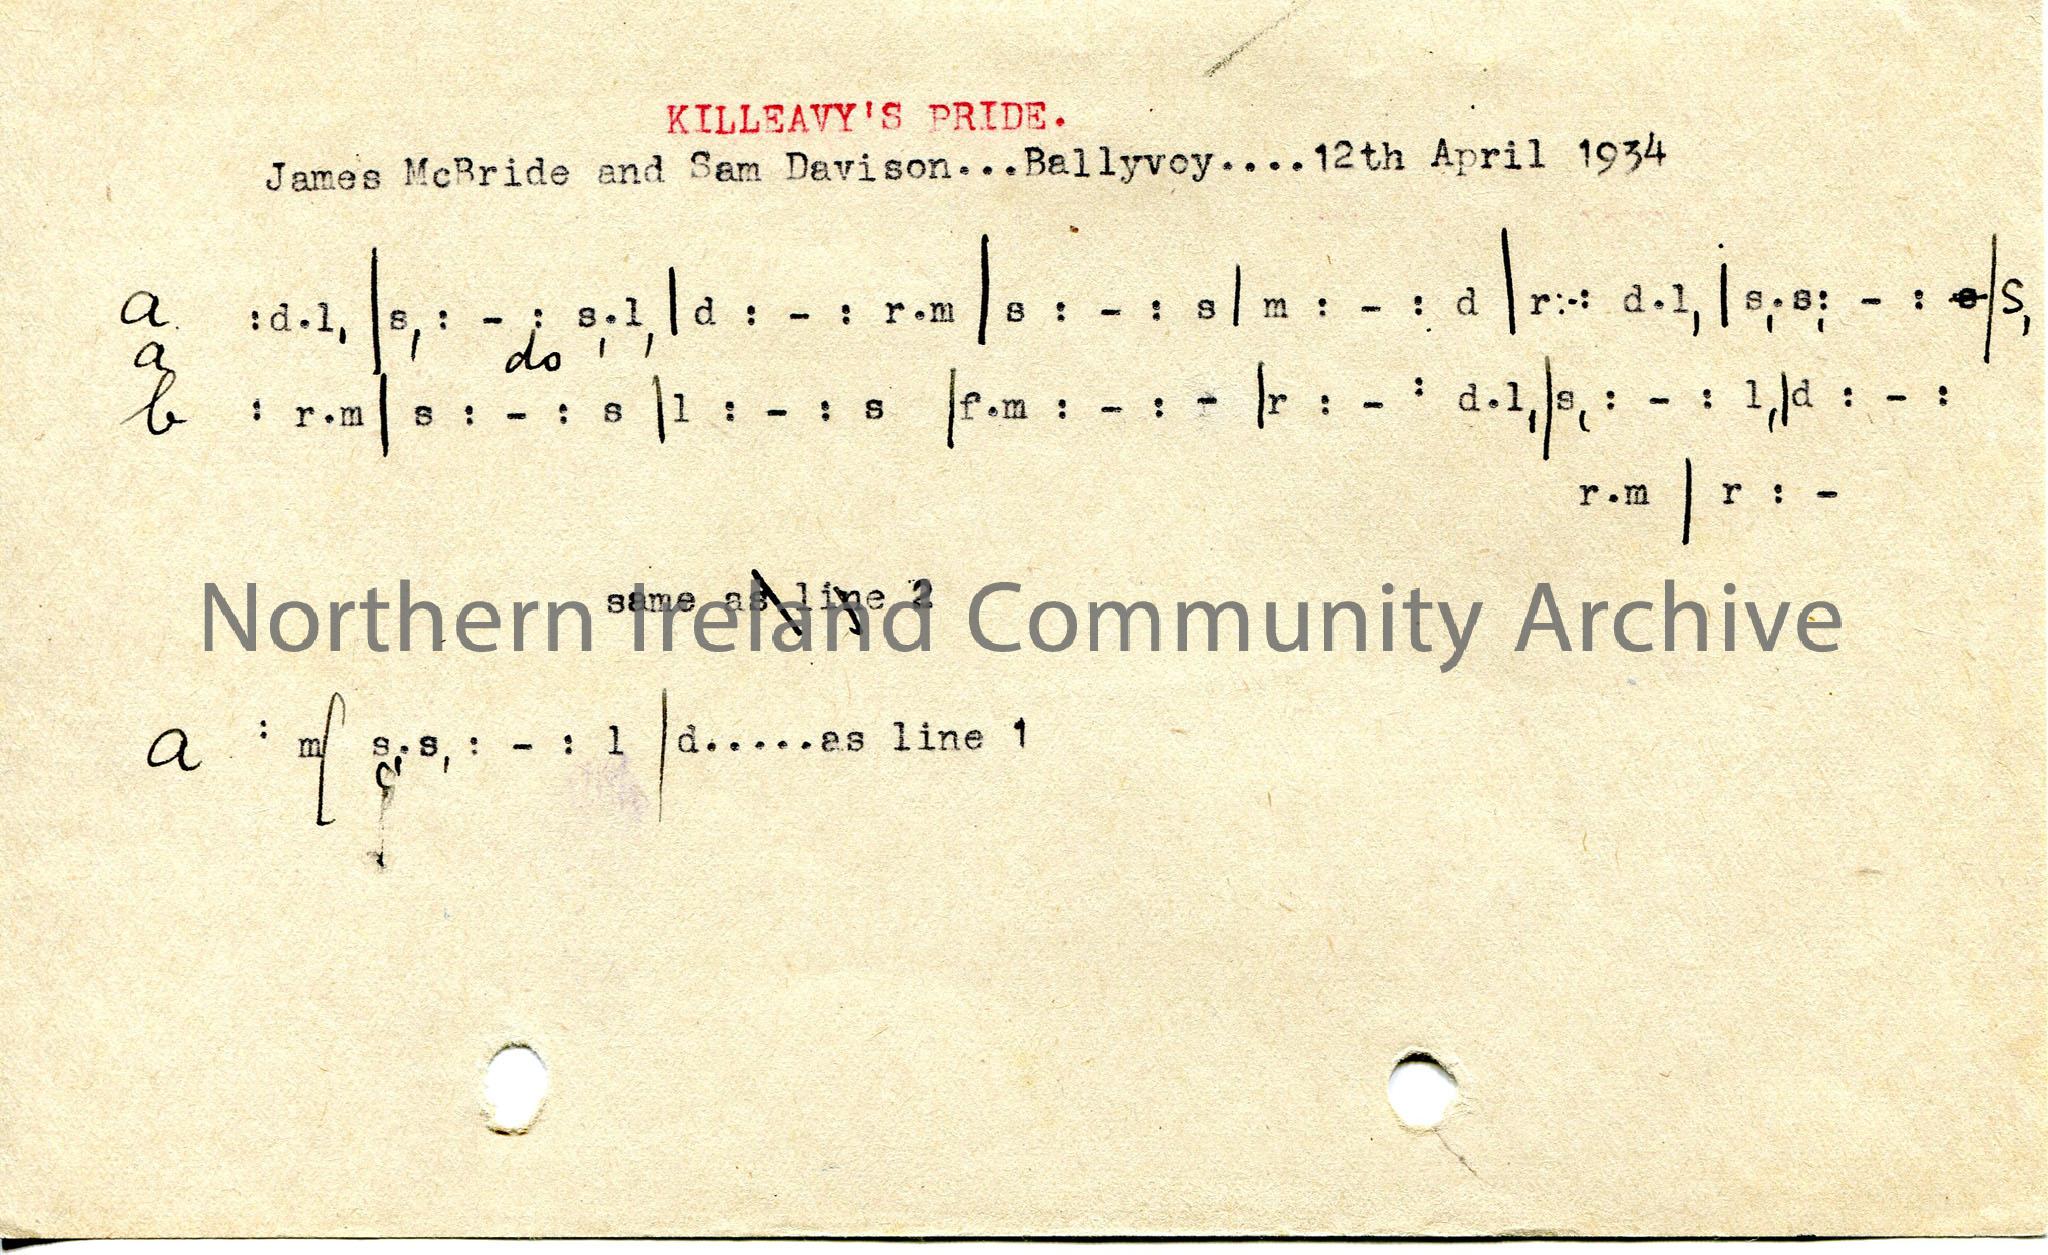 KILLEAVY'S PRIDE.
James McBride and Sam Davison...Ballyvoy....12th April 1934
a :d.l, | s, : - : s,.l, | d : - : r.m | s : - : s | m : - : d | r :-: d.l, | s,.s, : - : s | S,
a do
b : r.m | s : - : s | l : - : s | f.m : - : r | r : - : d.l, | s, : - : l, | d : - :
r.m | r : -
same as line 2
Northern Ireland Community Archive
a : m | s,.s, : - : l | d.....as line 1